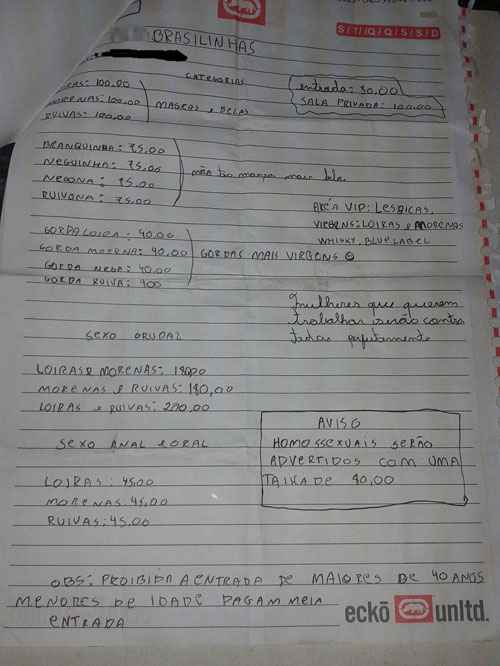 BRASILINHAS
S T Q Q S S D
CATEGORIAS
entrada: 30,00
SALA PRIVADA: 100,00
100,00
MORENAS: 100,00
RUIVAS: 100,00
MAGRAS e BELAS
BRANQUINHA: 75,00
NEGUINHA: 75,00
NEGONA: 75,00
RUIVONA: 75,00
não tão magra mais bela
AREA VIP: LESBICAS,
VIRGENS: LOIRAS e MORENAS
WHISKY, BLUE LABEL
GORDA LOIRA: 40,00
GORDA MORENA: 40,00
GORDA NEGA: 40,00
GORDA RUIVA: 400
GORDAS MAIS VIRGENS
mulheres que querem
trabalhar serão contra
tadas
SEXO GRUPAL
LOIRAS e MORENAS: 180,00
MORENAS e RUIVAS: 180,00
LOIRAS e RUIVAS: 200,00
SEXO ANAL e ORAL
LOIRAS: 45,00
MORENAS: 45,00
RUIVAS: 45,00
AVISO
HOMOSSEXUAIS SERÃO
ADVERTIDOS COM UMA
TAIXA DE 40,00
OBS: PROIBIDA A ENTRADA DE MAIORES DE 40 ANOS
MENORES DE IDADE PAGAM MEIA
ENTRADA
eckō unltd.